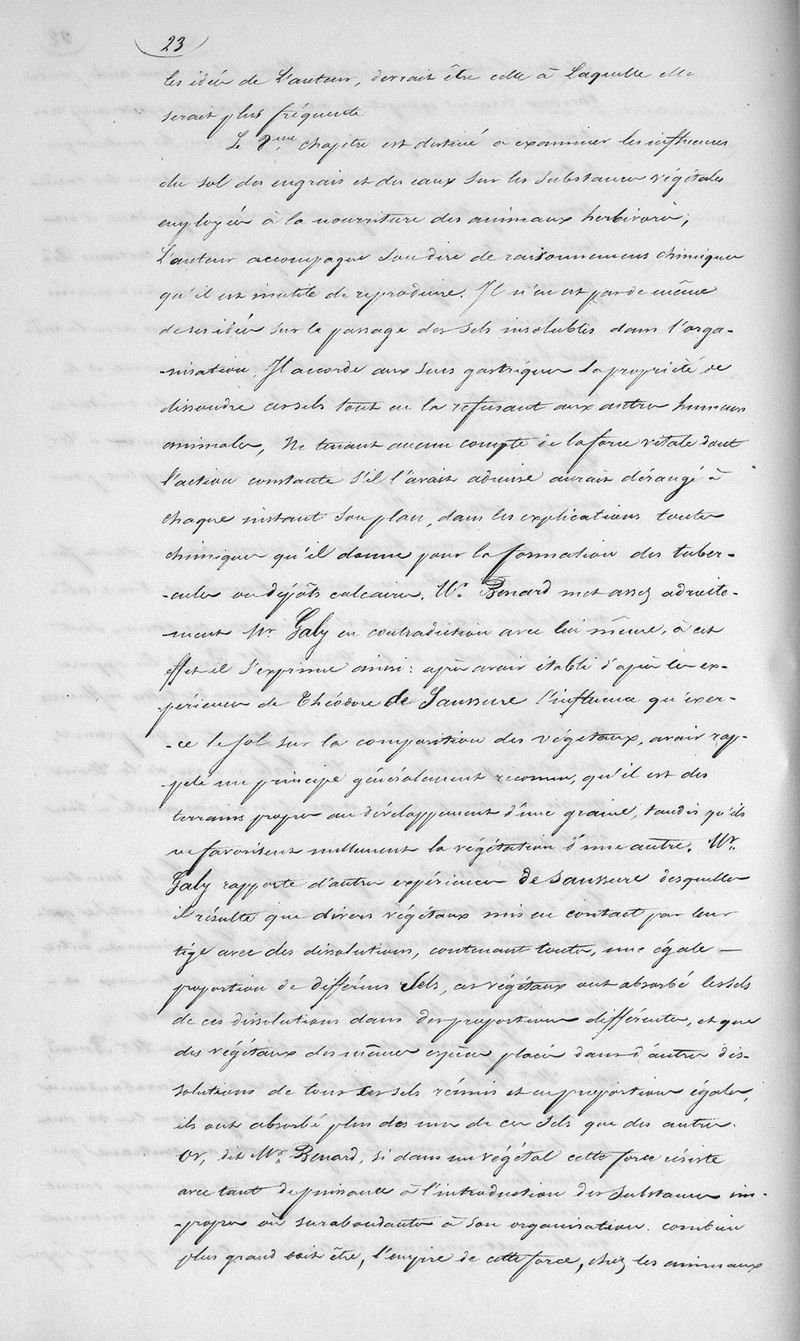 23
les idées de L'auteur, devrait être celle à Laquelle elle
serait plus fréquente
Le 2me chapitre est destiné a examiner les influences
du sol des engrais et des eaux sur les substances végétales
employées à la nourriture des animaux herbivores;
L'auteur accompagne son dire de raisonnemens chimiques
qu'il est inutile de reproduire. Il n'en est pas de même
de ses idées sur le passage des sels insolubles dans l'orga-
-nisation. Il accorde aux sucs gastriques la propriété de
dissoudre ces sels tout en la refusant aux autres humeurs
animales, Ne tenant aucun compte de la force vitale dont
l'action constante s'il l'avait admise aurait dérangé à
chaque instant son plan, dans les explications toutes
chimiques qu'il donne pour la formation des tuber-
-cules ou dépôts calcaires. Mr. Benard met assez adroite-
-ment Mr Galy en contradiction avec lui même, à cet
effet il s'exprime ainsi: après avoir établi d'après les ex-
périences de Théodore de Saussure l'influence qu'exer-
-ce le sol sur la composition des végétaux, avoir rap-
pelé un principe généralement reconnu, qu'il est des
terrains propres au développement d'une graine, tandis qu'ils
ne favorisent nullement la végétation d'une autre. Mr.
Galy rapporte d'autres expériences de Saussure desquelles
il résulte que divers végétaux mis en contact par leur
tige avec des dissolutions, contenant toutes, une égale
proportion de différens Sels, ces végétaux ont absorbé les sels
de ces dissolutions dans des proportions différentes, et que
des végétaux des mêmes espèces placés dans d'autres dis-
solutions de tous ces sels réunis et en proportions égales,
ils ont absorbé plus des uns de ces sels que des autres.
Or, dit Mr. Benard, si dans un végétal cette force résiste
avec tant de puissance à l'introduction des substances im-
-propres ou surabondantes à son organisation. combien
plus grand doit être, l'empire de cette force, chez les animaux